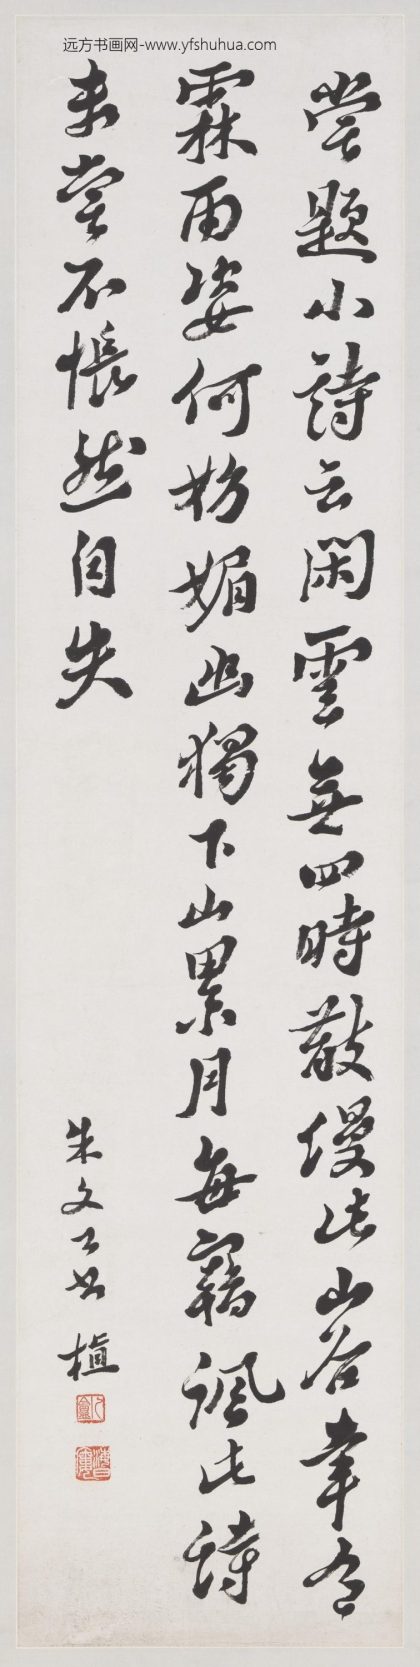 远方书画网-www.yfshuhua.com
嘗題小詩云閑雲無四時散漫此山谷幸乏
霖雨姿何妨媚幽獨下山累月每竊諷此詩
未嘗不悵然自失
朱文公書 植